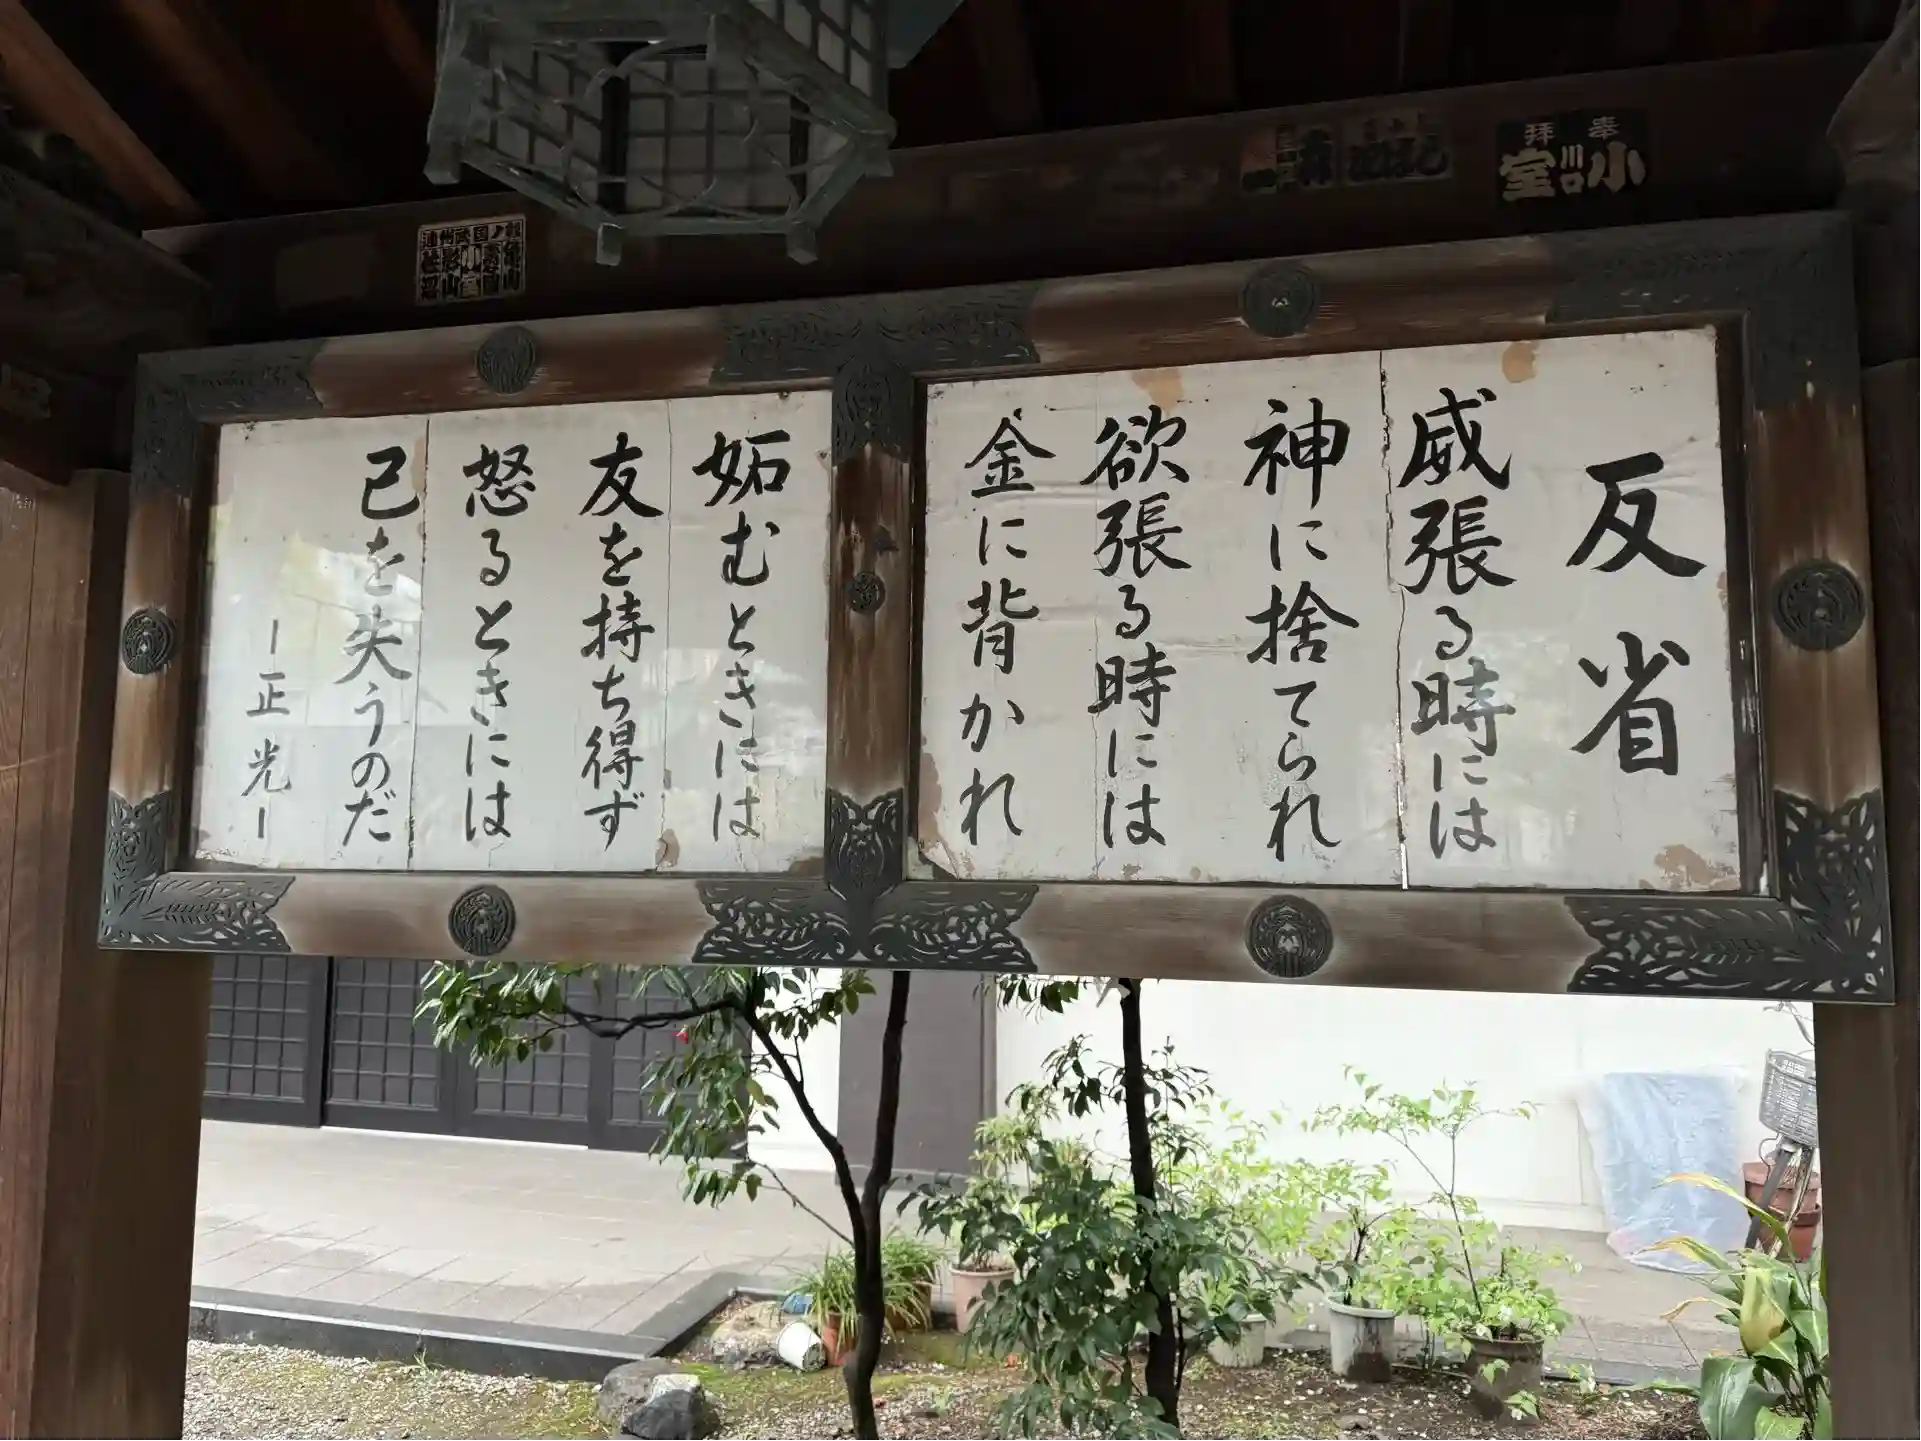 奉拝
川口
小室
反省
威張る時には
神に捨てられ
欲張る時には
金に背かれ
妬むときには
友を持ち得ず
怒るときには
己を失うのだ
ー正光ー